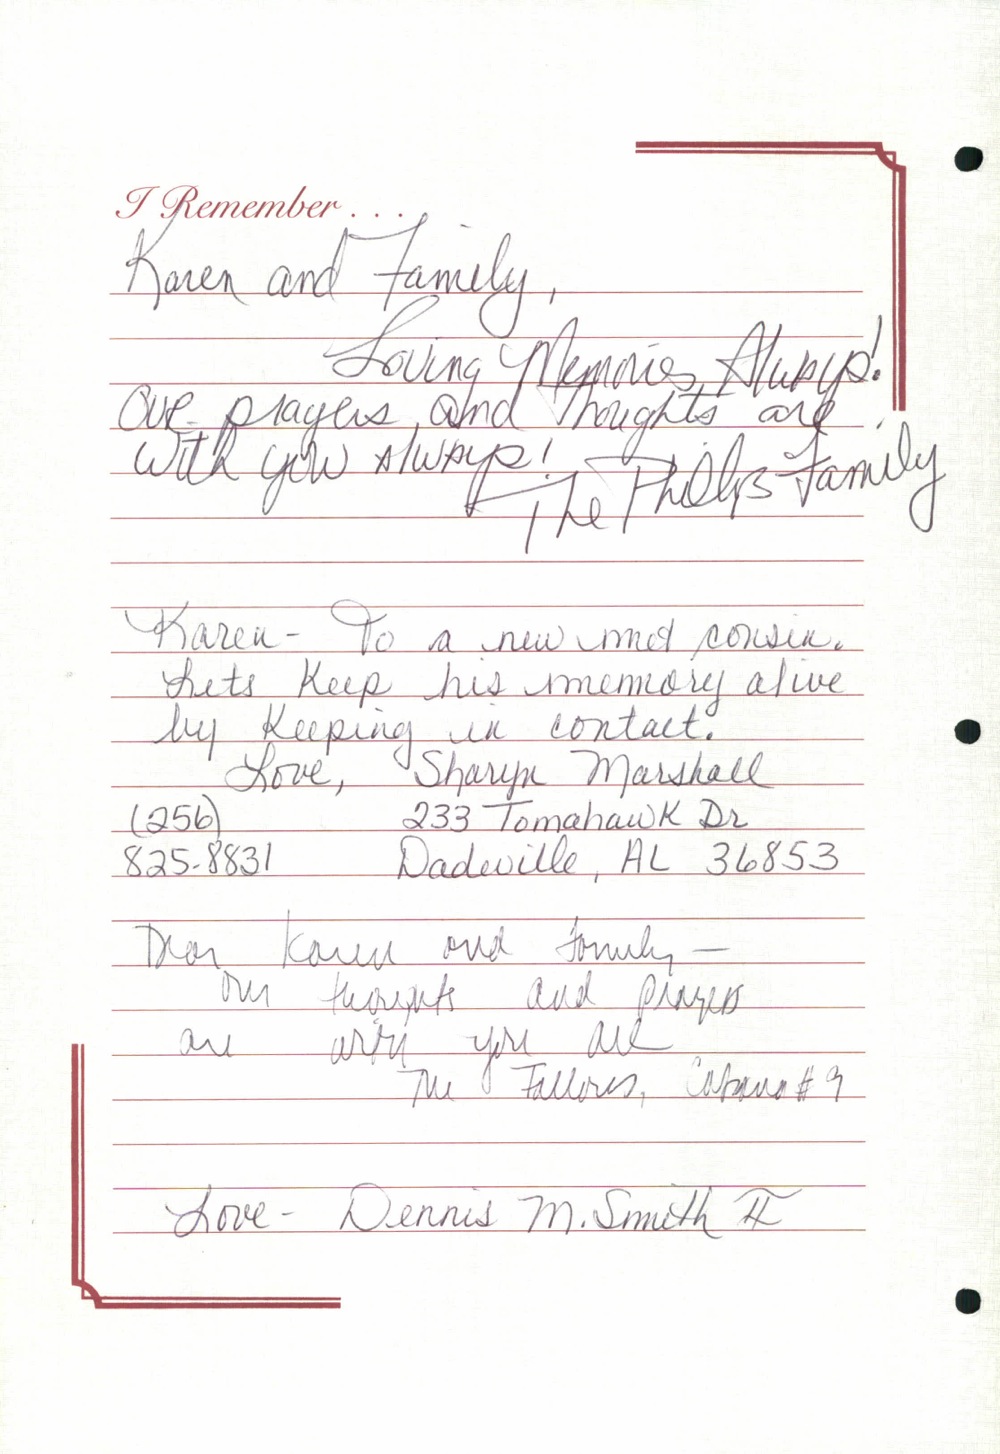 I Remember . . .
Karen and Family,
Loving Memories, Always!
Our prayers and thoughts are
with you Always!
The Phillips Family
Karen - To a new met cousin.
Lets Keep his memory alive
by Keeping in contact.
Love, Sharyn Marshall
(256) 233 Tomahawk Dr
825-8831 Dadeville, AL 36853
Dear Karen and Family —
Our thoughts and prayers
are with you all
The Fallows, Cabana # 9
Love - Dennis M. Smith II